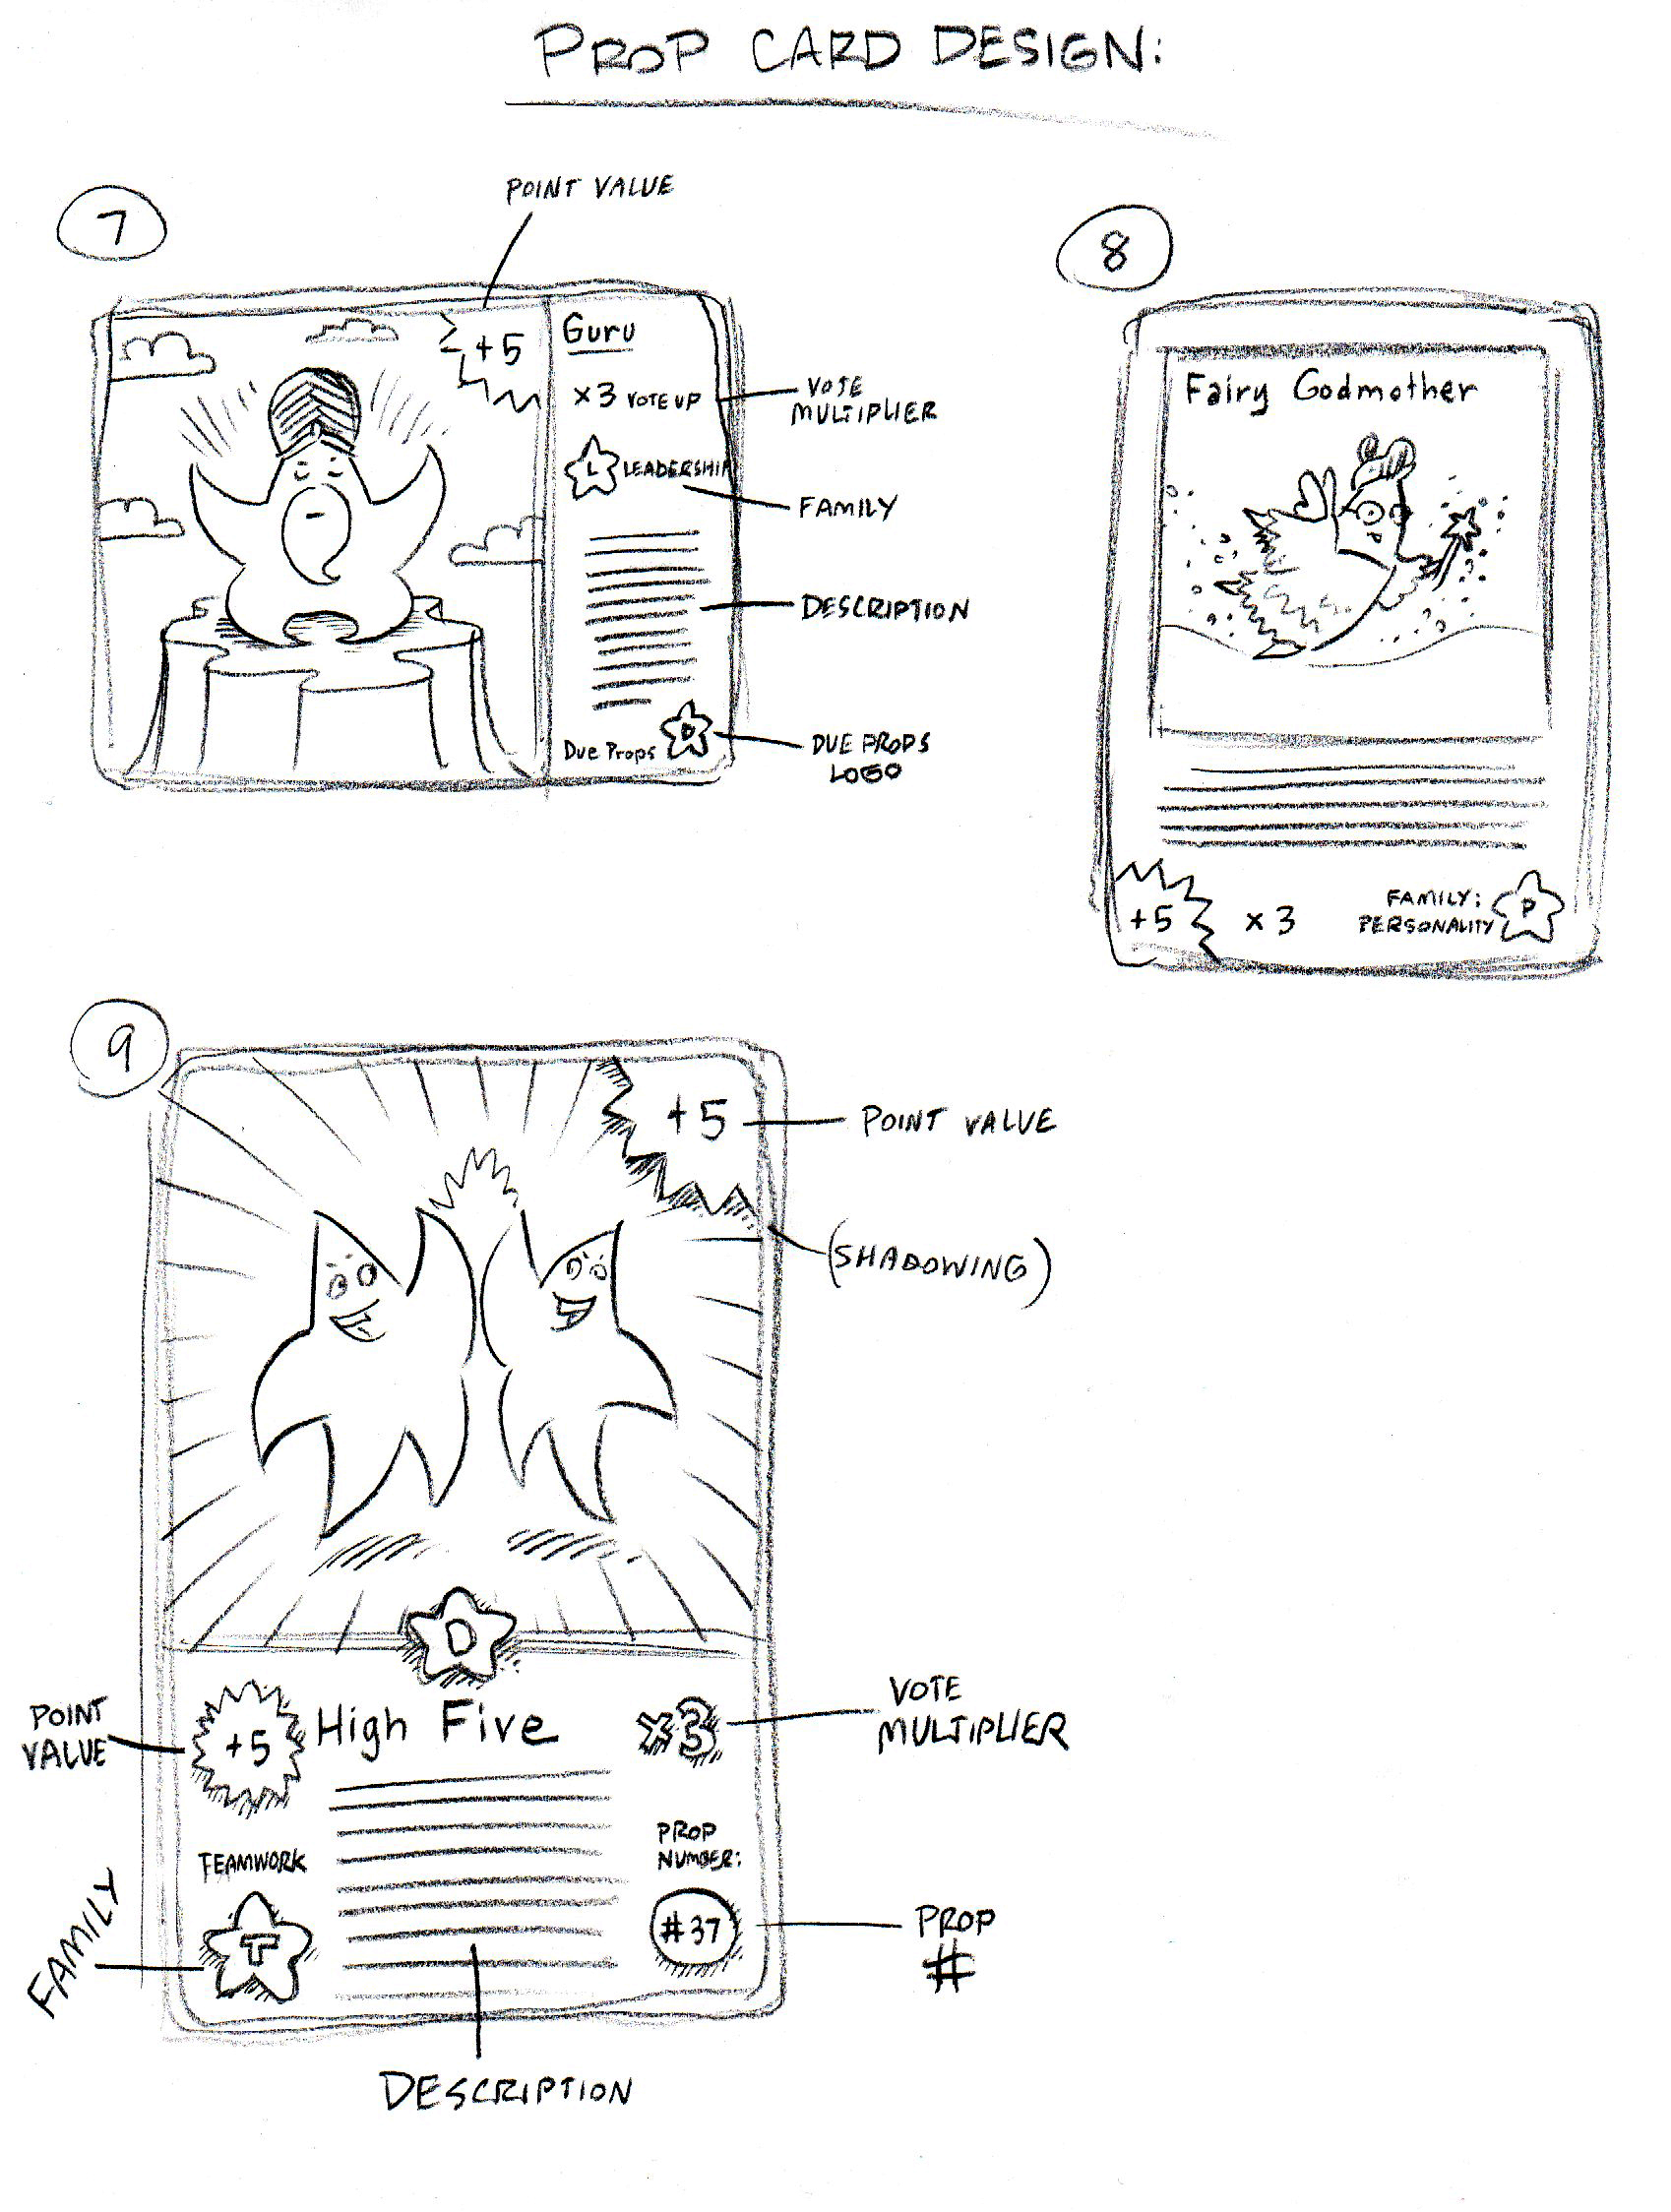 PROP CARD DESIGN:
7
POINT VALUE
+5
Guru
x3 VOTE UP
VOTE
MULTIPLIER
L LEADERSHIP
FAMILY
DESCRIPTION
Due Props D
DUE PROPS
LOGO
8
Fairy Godmother
+5 x 3
FAMILY:
PERSONALITY P
9
+5
POINT VALUE
(SHADOWING)
D
POINT
VALUE
+5
High Five
x3
VOTE
MULTIPLIER
TEAMWORK
T
FAMILY
PROP
NUMBER:
#37
PROP
#
DESCRIPTION